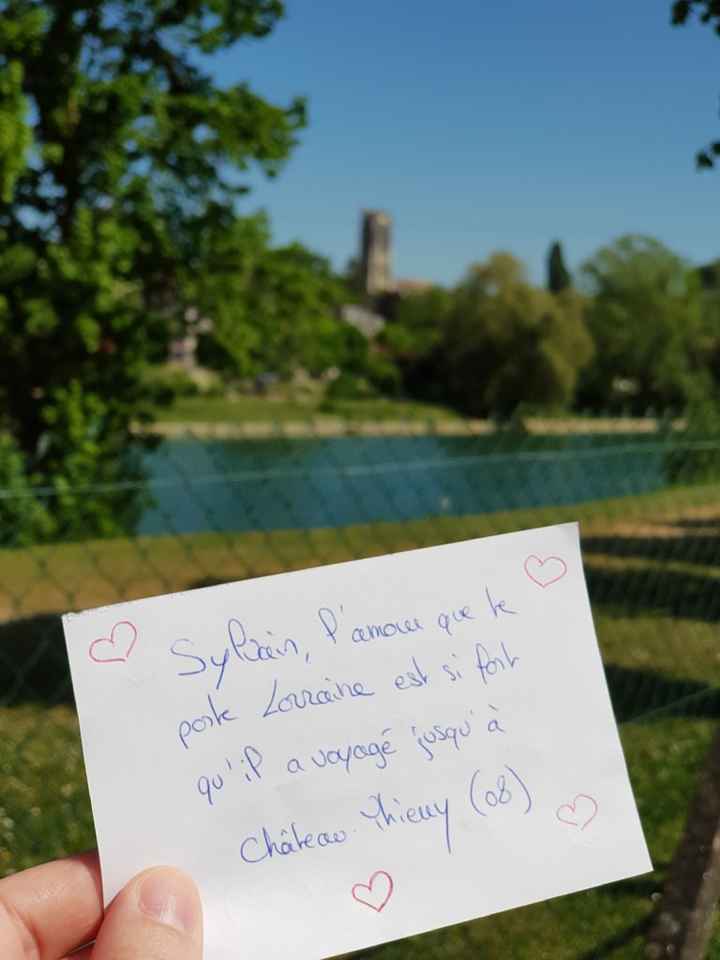 Sylvain, l'amour que te
porte Lorraine est si fort
qu'il a voyagé jusqu'à
Château-Thierry (08)